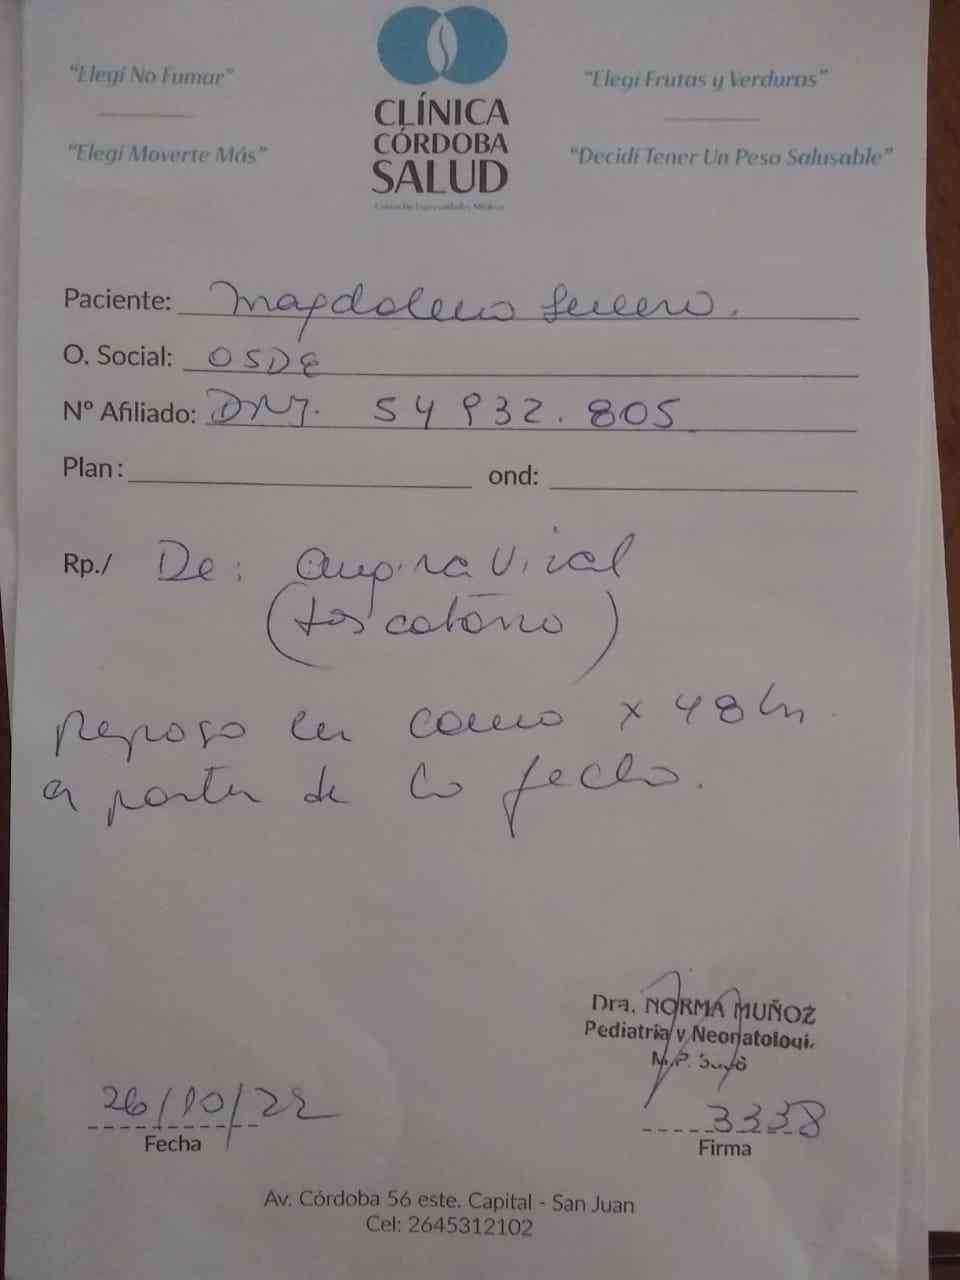 "Elegí No Fumar"
"Elegí Moverte Más"
CLÍNICA
CÓRDOBA
SALUD
"Elegí Frutas y Verduras"
"Decidí Tener Un Peso Salusable"
Paciente: Magdalena
O. Social: OSDE
Nº Afiliado: DNI. 54 932.805
Plan:
ond:
Rp./ De: angina Viral
(tos catarro)
Reposo en cama x 48 hs
a partir de la fecha.
Dra. NORMA MUÑOZ
Pediatria y Neonatologi.
M.P.
3338
Firma
26/10/22
Fecha
Av. Córdoba 56 este. Capital - San Juan
Cel: 2645312102